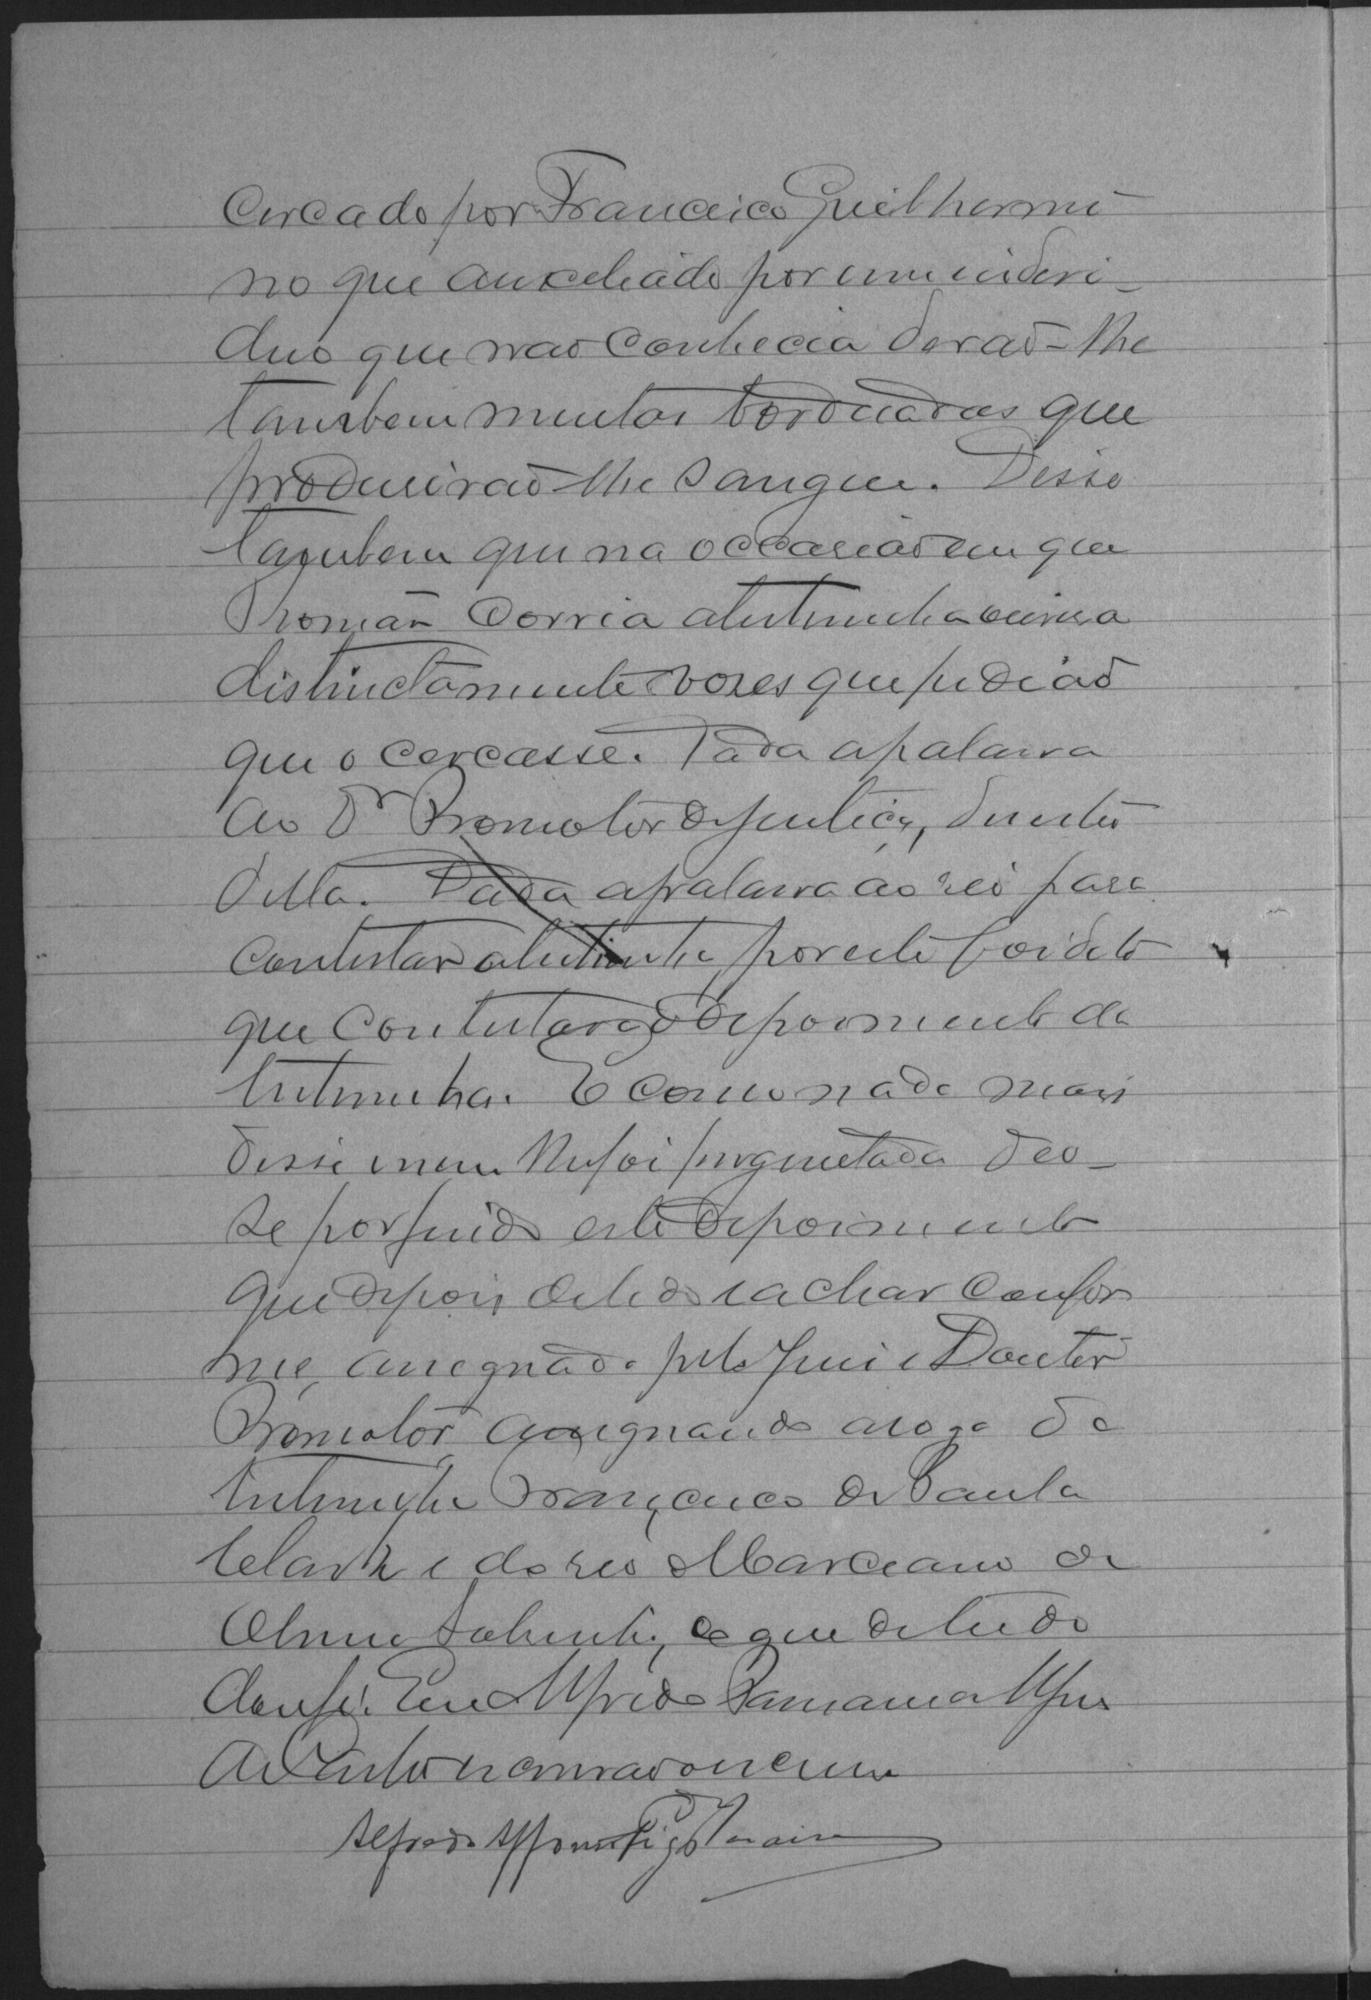 cercado por Francisco Guilhermi
no que auxeliado por um indevi-
duo que não conhecia derão-lhe
tambem muitas bordoadas que
produsirão-lhe sangue. Disse
tambem que na occasião em que
Romão corria a testimunha ouvira
distinctamente vozes que pedião
que o cercasse. Dada a palavra
ao Dr Promotor de justiça, desistio
della. Dada a palavra ao reo para
contestar a testimunha, por este foi dito
que contestava o depoimento da
testimunha. E como nada mais
disse e nem lhe foi perguntada deo-
se por findo este depoimento
que depois de lido e achar confor
me, assignado pelo Juiz e Doutor
Promotor, assignando a rogo da
testimunha Francisco de Paula
e do reo Marciano de
de que de tudo
dou fé. Eu Alfredo
escrivão o escrevi
Alfredo Affonso